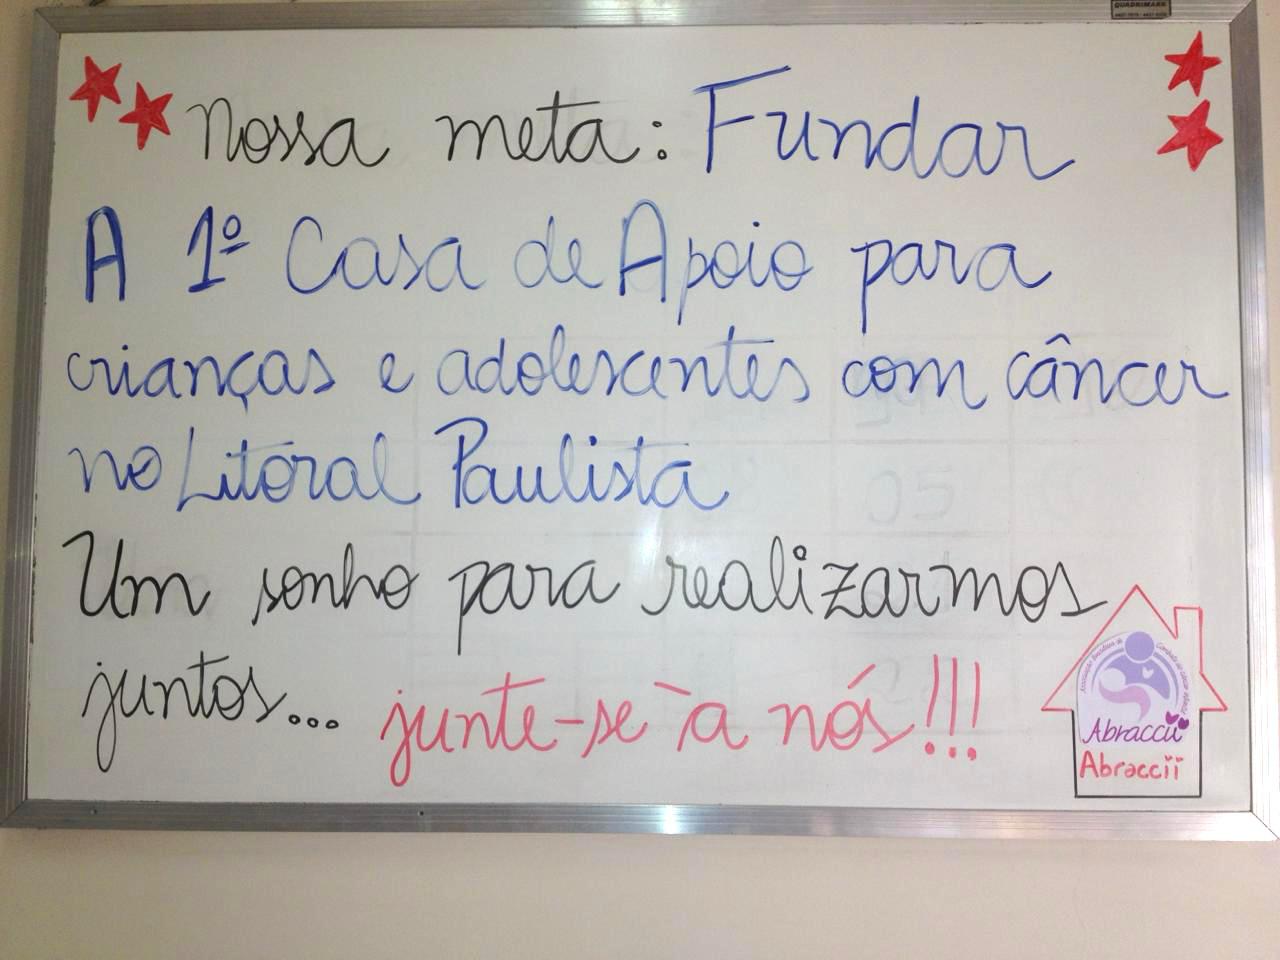 QUADRIMARK
Nossa meta: Fundar
A 1º Casa de Apoio para
crianças e adolescentes com câncer
no Litoral Paulista
Um sonho para realizarmos
juntos... junte-se à nós!!!
Abraccii
Abraccii